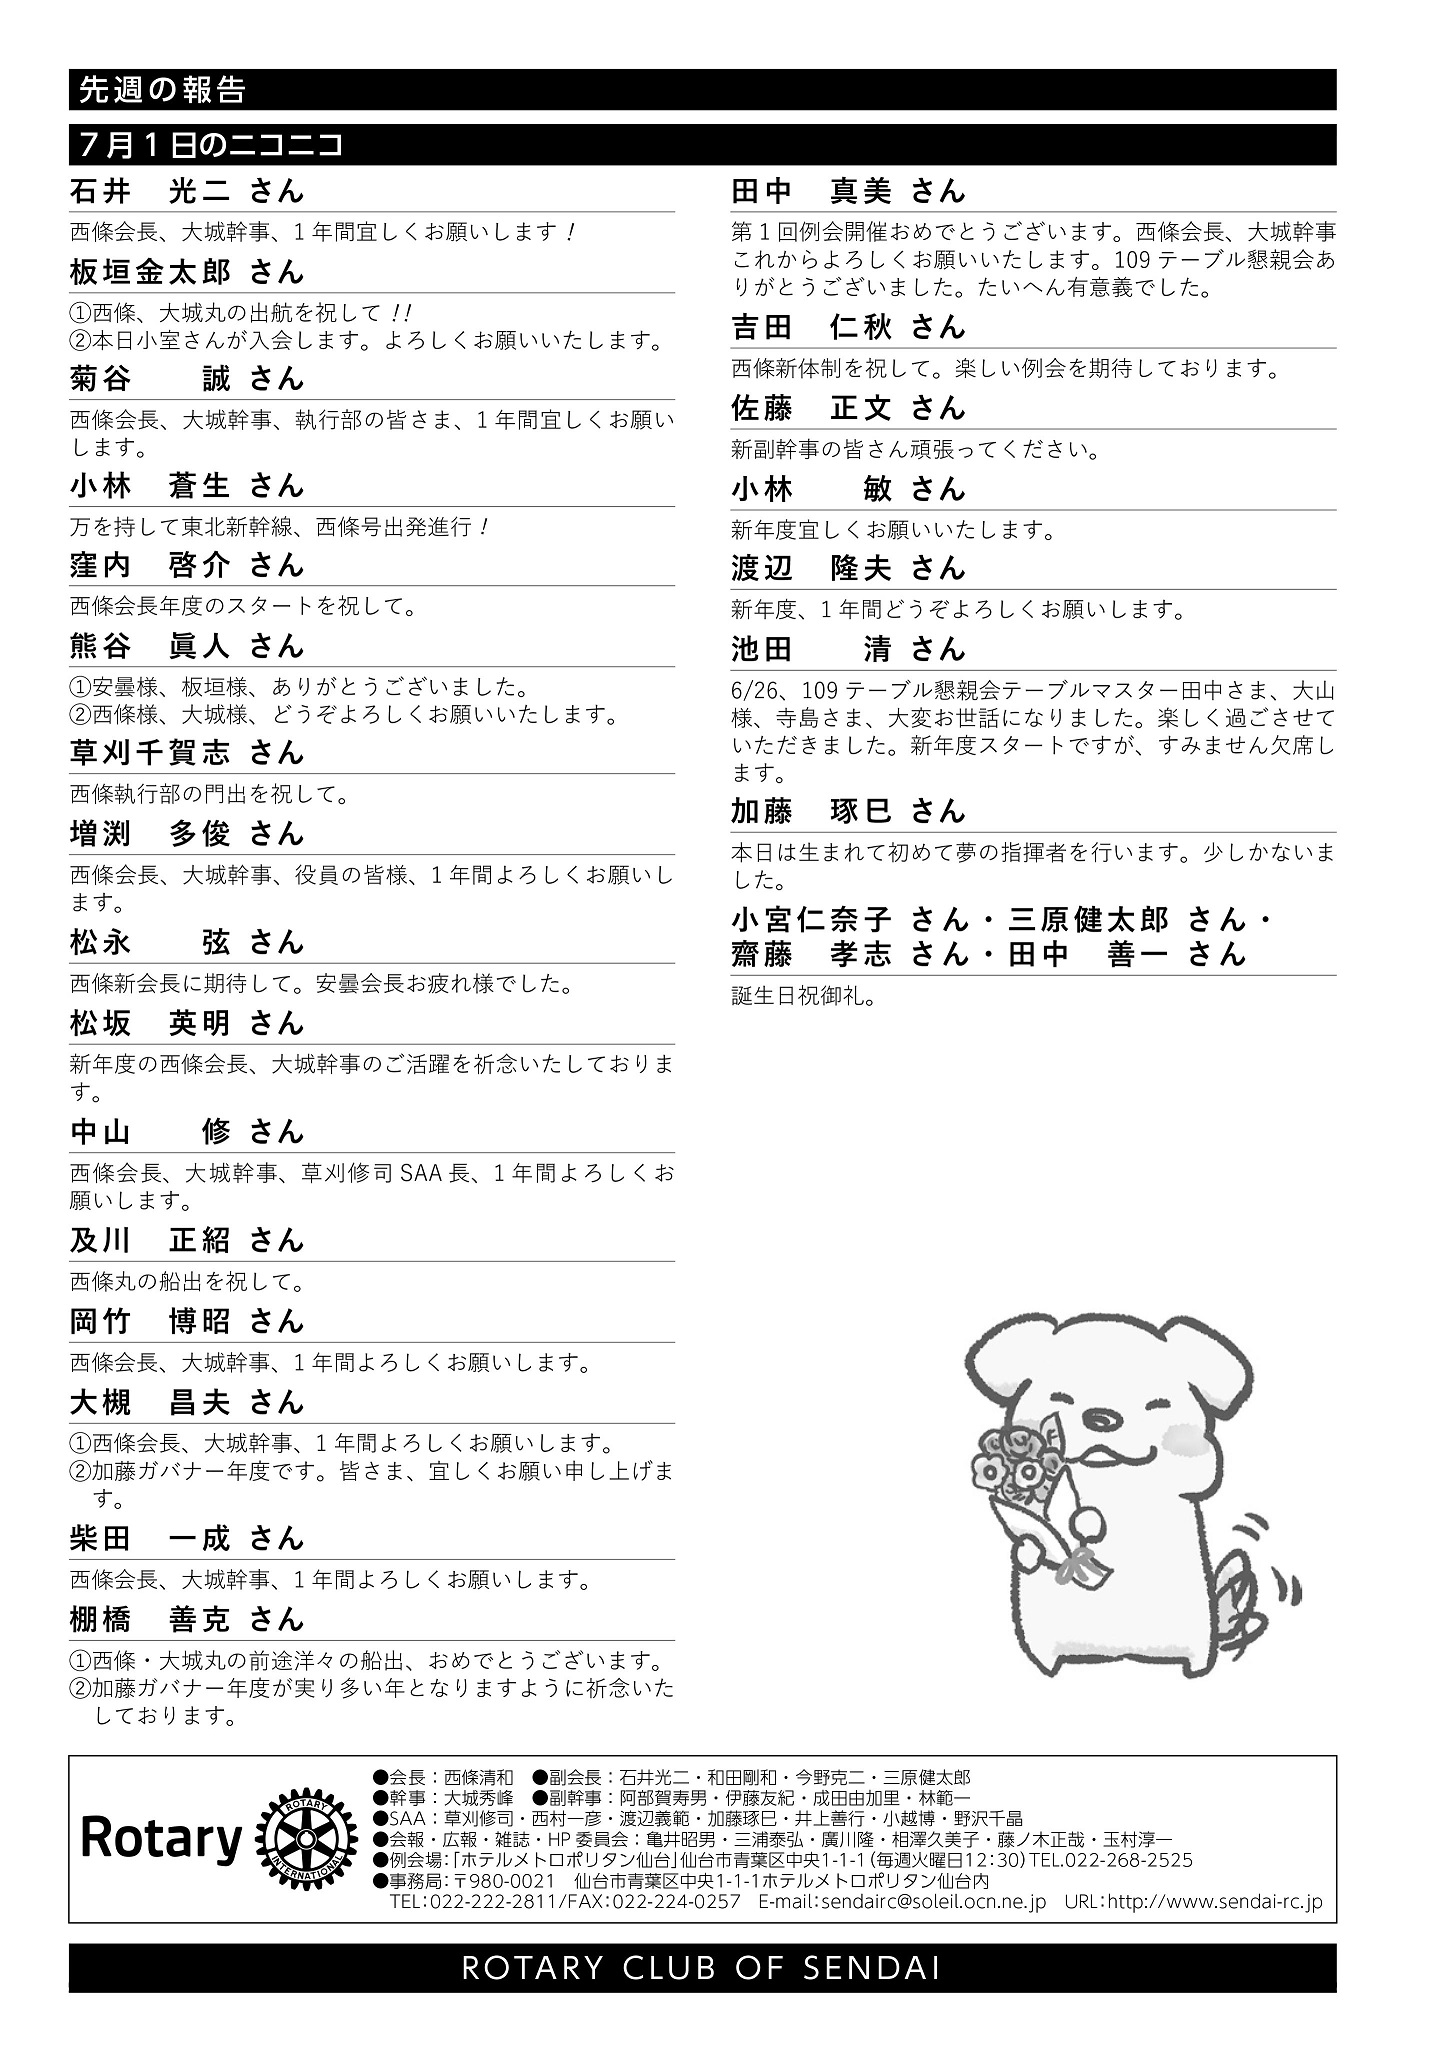 先週の報告
7月1日のニコニコ
石井　光二 さん
西條会長、大城幹事、1年間宜しくお願いします！
板垣金太郎 さん
①西條、大城丸の出航を祝して!!
②本日小室さんが入会します。よろしくお願いいたします。
菊谷　　誠 さん
西條会長、大城幹事、執行部の皆さま、1年間宜しくお願い
します。
小林　蒼生 さん
万を持して東北新幹線、西條号出発進行！
窪内　啓介 さん
西條会長年度のスタートを祝して。
熊谷　眞人 さん
①安曇様、板垣様、ありがとうございました。
②西條様、大城様、どうぞよろしくお願いいたします。
草刈千賀志 さん
西條執行部の門出を祝して。
増渕　多俊 さん
西條会長、大城幹事、役員の皆様、1年間よろしくお願いし
ます。
松永　　弦 さん
西條新会長に期待して。安曇会長お疲れ様でした。
松坂　英明 さん
新年度の西條会長、大城幹事のご活躍を祈念いたしておりま
す。
中山　　修 さん
西條会長、大城幹事、草刈修司 SAA 長、1年間よろしくお
願いします。
及川　正紹 さん
西條丸の船出を祝して。
岡竹　博昭 さん
西條会長、大城幹事、1年間よろしくお願いします。
大槻　昌夫 さん
①西條会長、大城幹事、1年間よろしくお願いします。
②加藤ガバナー年度です。皆さま、宜しくお願い申し上げま
す。
柴田　一成 さん
西條会長、大城幹事、1年間よろしくお願いします。
棚橋　善克 さん
①西條・大城丸の前途洋々の船出、おめでとうございます。
②加藤ガバナー年度が実り多い年となりますように祈念いた
しております。
田中　真美 さん
第1回例会開催おめでとうございます。西條会長、大城幹事
これからよろしくお願いいたします。109 テーブル懇親会あ
りがとうございました。たいへん有意義でした。
吉田　仁秋 さん
西條新体制を祝して。楽しい例会を期待しております。
佐藤　正文 さん
新副幹事の皆さん頑張ってください。
小林　　敏 さん
新年度宜しくお願いいたします。
渡辺　隆夫 さん
新年度、1年間どうぞよろしくお願いします。
池田　　清 さん
6/26、109 テーブル懇親会テーブルマスター田中さま、大山
様、寺島さま、大変お世話になりました。楽しく過ごさせて
いただきました。新年度スタートですが、すみません欠席し
ます。
加藤　琢巳 さん
本日は生まれて初めて夢の指揮者を行います。少しかないま
した。
小宮仁奈子 さん・三原健太郎 さん・
齋藤　孝志 さん・田中　善一 さん
誕生日祝御礼。
Rotary
ROTARY
INTERNATIONAL
●会長：西條清和　●副会長：石井光二・和田剛和・今野克二・三原健太郎
●幹事：大城秀峰　●副幹事：阿部賀寿男・伊藤友紀・成田由加里・林範一
●SAA：草刈修司・西村一彦・渡辺義範・加藤琢巳・井上善行・小越博・野沢千晶
●会報・広報・雑誌・HP 委員会：亀井昭男・三浦泰弘・廣川隆・相澤久美子・藤ノ木正哉・玉村淳一
●例会場：「ホテルメトロポリタン仙台」仙台市青葉区中央1-1-1（毎週火曜日12：30）TEL.022-268-2525
●事務局：〒980-0021　仙台市青葉区中央1-1-1ホテルメトロポリタン仙台内
TEL：022-222-2811/FAX：022-224-0257　E-mail：sendairc@soleil.ocn.ne.jp　URL：http://www.sendai-rc.jp
ROTARY CLUB OF SENDAI